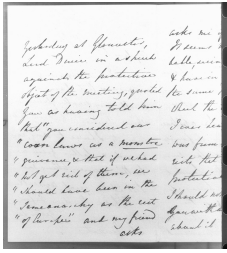 Yesterday at Gloucester,
Lord Ducie in a speech
against the protective
object of the meeting, quoted
you as having told him
that "you considered our
"corn laws as a monster
"grievance, & that if we had
"not got rid of them, we
"should have been in the
"same anarchy as the rest
"of Europe" and my friend
asks
asks me
it seems
the same
that the
I was
was
cite that
Protection
I should
you with
should